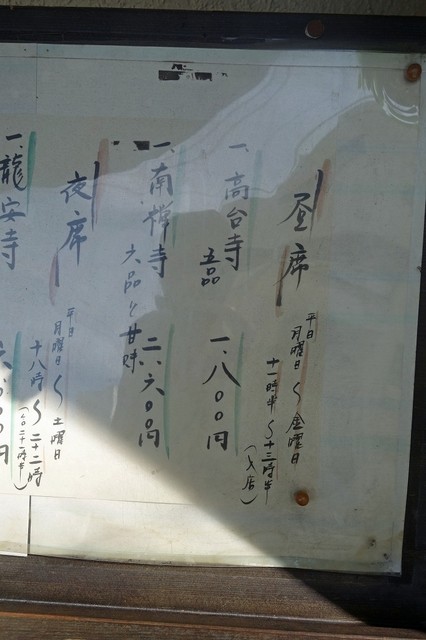 昼席
平日
月曜日〜金曜日
十一時半〜十三時半
(入店)
一、高台寺
五品
一、八〇〇円
一、南禅寺
六品と甘味
二、六〇〇円
夜席
平日
月曜日〜土曜日
十八時〜二十二時
一、龍安寺